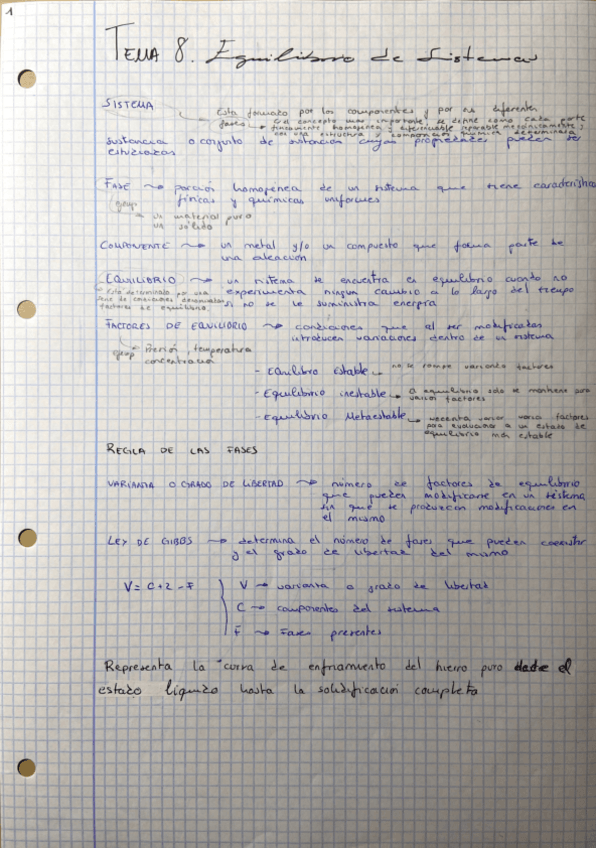 1
TEMA 8. Equilibrio de Sistemas
SISTEMA
Esta formado por los componentes y por las diferentes
fases
Es el concepto mas importante, se define como cada parte
homogénea y diferenciable separable mecánicamente,
con una estructura y composición química determinada
sustancia o conjunto de sustancias cuyas propiedades pueden ser
estudiadas
FASE porción homogénea de un sistema que tiene característic
físicas y químicas uniformes
un material puro
un sólido
COMPONENTE un metal y/o un compuesto que forma parte de
una aleación
EQUILIBRIO un sistema se encuentra en equilibrio cuando no
experimenta ningun cambio a lo largo del tiempo
si no se le suministra energia
Esta determinado por una
serie de condiciones denominadas
factores de equilibrio
FACTORES DE EQUILIBRIO condiciones que al ser modificadas
introducen variaciones dentro de un sistema
Presión, temperatura
concentración
- Equilibro Estable no se rompe variando factores
- Equilibrio inestable el equilibrio solo se mantiene para
varios factores
- Equilibrio Metaestable necesita variar varios factores
para evolucionar a un estado de
equilibrio más estable
REGLA DE LAS FASES
VARIANZA O GRADO DE LIBERTAD número de factores de equilibrio
que pueden modificarse en un sistema
sin que se produzcan modificaciones en
el mismo
LEY DE GIBBS determina el número de fases que pueden coexistir
y el grado de libertad del mismo
V = C + 2 - F
V → varianza o grado de libertad
C → componentes del sistema
F → Fases presentes
Representa la curva de enfriamiento del hierro puro desde el
estado líquido hasta la solidificación completa